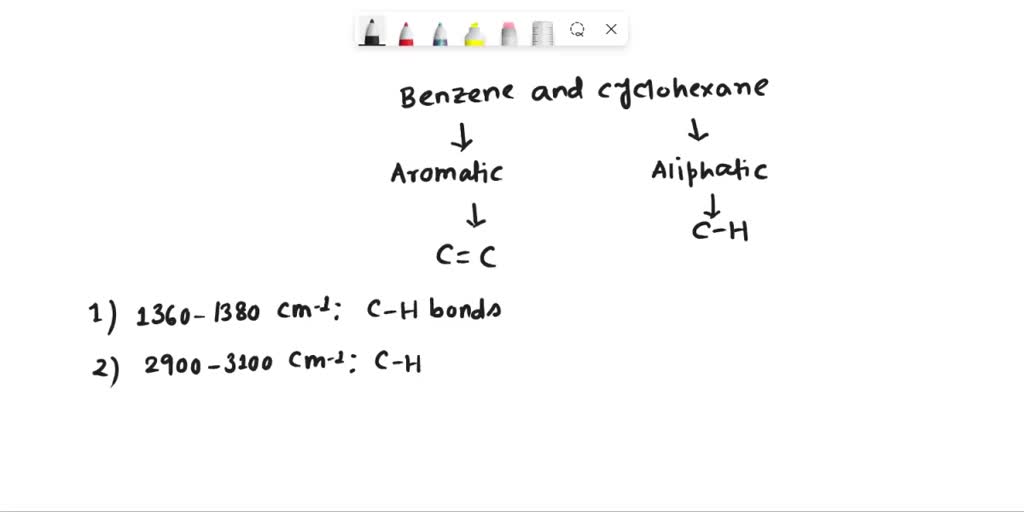 Benzene and cyclohexane
Aromatic Aliphatic
C-H
C=C
1) 1360-1380 cm-1: C-H bonds
2) 2900-3100 cm-1: C-H